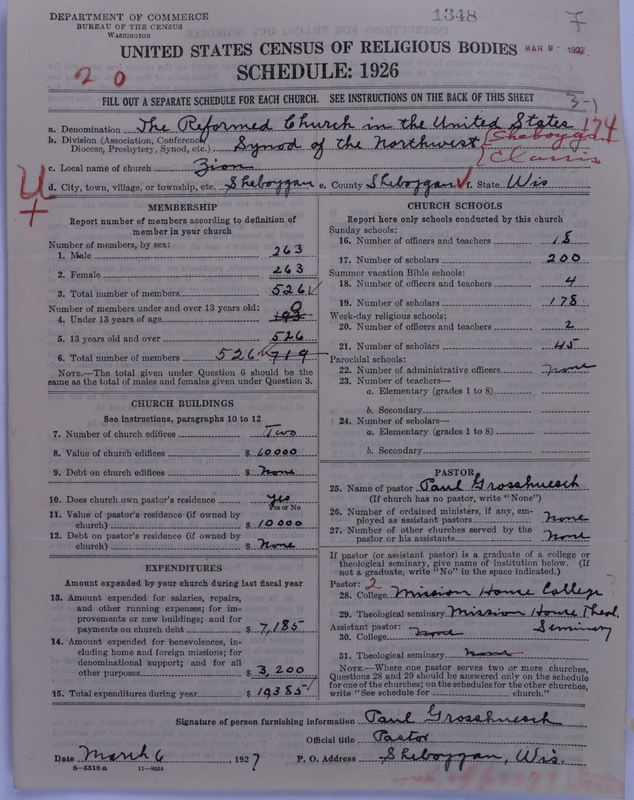 DEPARTMENT OF COMMERCE
BUREAU OF THE CENSUS
WASHINGTON
1348
7
UNITED STATES CENSUS OF RELIGIOUS BODIES
MAR 9 - 1927
SCHEDULE: 1926
2 0
FILL OUT A SEPARATE SCHEDULE FOR EACH CHURCH. SEE INSTRUCTIONS ON THE BACK OF THIS SHEET
3-1
a. Denomination The Reformed Church in the United States 174
b. Division (Association, Conference, Diocese, Presbytery, Synod, etc.) Synod of the Northwest (Sheboygan Classis
c. Local name of church Zion
d. City, town, village, or township, etc. Sheboygan e. County Sheboygan f. State Wis
U
+
MEMBERSHIP
Report number of members according to definition of
member in your church
Number of members, by sex:
1. Male 263
2. Female 263
3. Total number of members 526
Number of members under and over 13 years old:
4. Under 13 years of age 0 193
5. 13 years old and over 526
6. Total number of members 526 719
NOTE.—The total given under Question 6 should be the
same as the total of males and females given under Question 3.
CHURCH BUILDINGS
See instructions, paragraphs 10 to 12
7. Number of church edifices Two
8. Value of church edifices $ 60000
9. Debt on church edifices $ None
10. Does church own pastor's residence yes
Yes or No
11. Value of pastor's residence (if owned by
church) $ 10000
12. Debt on pastor's residence (if owned by
church) $ None
EXPENDITURES
Amount expended by your church during last fiscal year
13. Amount expended for salaries, repairs,
and other running expenses; for im-
provements or new buildings; and for
payments on church debt $ 7,185
14. Amount expended for benevolences, in-
cluding home and foreign missions; for
denominational support; and for all
other purposes $ 3,200
15. Total expenditures during year $ 10,385
CHURCH SCHOOLS
Report here only schools conducted by this church
Sunday schools:
16. Number of officers and teachers 18
17. Number of scholars 200
Summer vacation Bible schools:
18. Number of officers and teachers 4
19. Number of scholars 178
Week-day religious schools:
20. Number of officers and teachers 2
21. Number of scholars 45
Parochial schools:
22. Number of administrative officers none
23. Number of teachers—
a. Elementary (grades 1 to 8)
b. Secondary
24. Number of scholars—
a. Elementary (grades 1 to 8)
b. Secondary
PASTOR
25. Name of pastor Paul Grosshuesch
(If church has no pastor, write "None")
26. Number of ordained ministers, if any, em-
ployed as assistant pastors none
27. Number of other churches served by the
pastor or his assistants none
If pastor (or assistant pastor) is a graduate of a college or
theological seminary, give name of institution below. (If
not a graduate, write "No" in the space indicated.)
Pastor: 2
28. College Mission House College
29. Theological seminary Mission House Theol.
Seminary
Assistant pastor:
30. College none
31. Theological seminary none
NOTE.—Where one pastor serves two or more churches,
Questions 28 and 29 should be answered only on the schedule
for one of the churches; on the schedules for the other churches,
write "See schedule for church."
Signature of person furnishing information Paul Grosshuesch
Official title Pastor
Date March 6, 1927 P. O. Address Sheboygan, Wis.
6—5516 a 11—9054